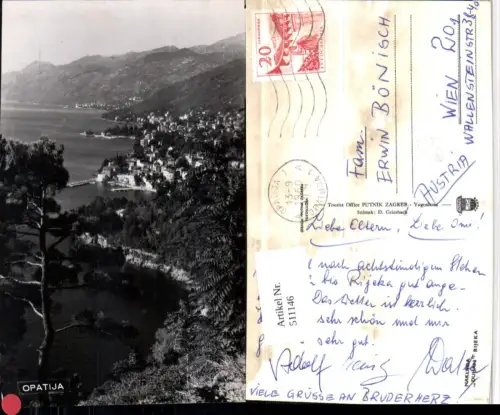 OPATIJA
20
Fam.
ERWIN BÖNISCH
WIEN 20.
WALLENSTEINSTR 38/40
AUSTRIA
Tourist Office PUTNIK ZAGREB - Yugoslavia
Snimak: D. Griesbach
Liebe Eltern, Liebe Omi!
nach achtstündigem
bis Rijeka gut ange-
Das Wetter ist herrlich.
sehr schön und wir
sehr gut.
Artikel Nr.
511146
VIELE GRÜSSE AN BRUDERHERZ
RIJEKA